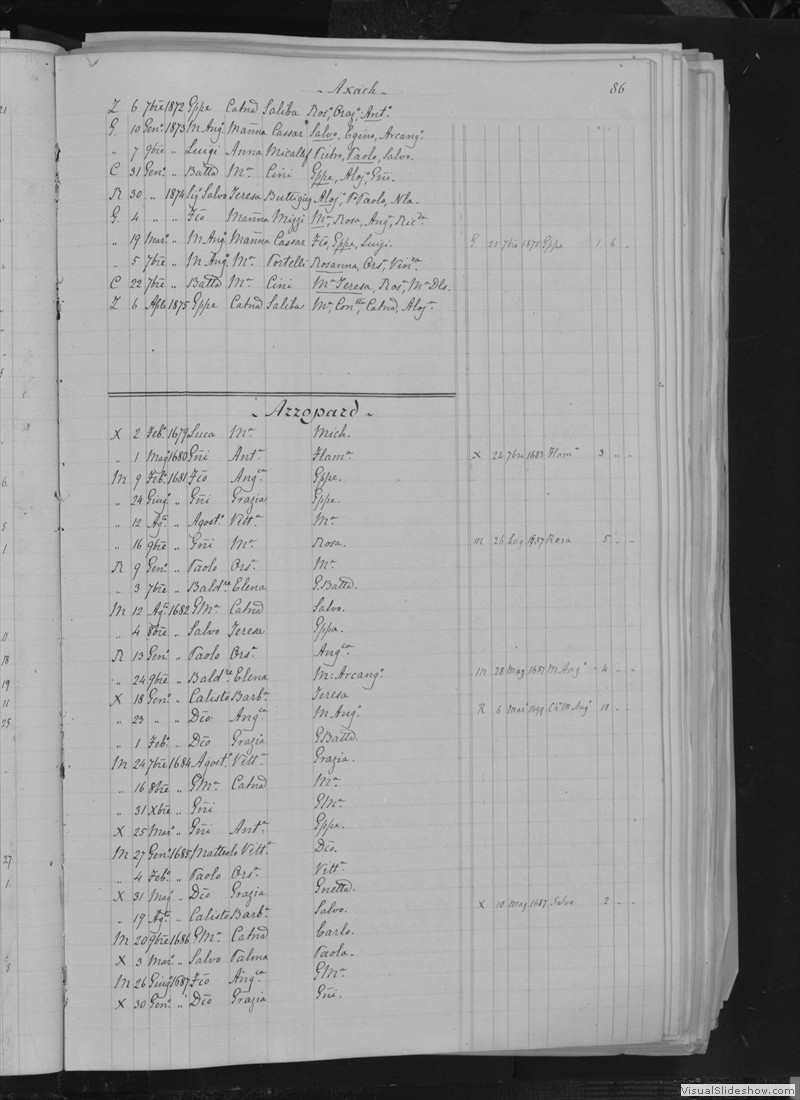 Axach
86
Z 6 7bre 1872 Gppe Catnd Saliba Rosa, Oraz, Anta
G. 10 Geno 1873 M Anga Mañna Cassar Salvo, Egino, Arcango
" 7 9bre " Luigi Anna Micallef Pietro, Paolo, Salvo.
C 31 Geno " Batta Ma Cini Gppe, Aloja, Gñi.
R 30 " 1874 Sig Salvo Teresa Buttigieg Aloja, Po Paolo, Nla.
G. 4 " " Fco Mañna Mizzi Ma, Rosa, Anga, Ricda
" 19 Maro " M Anga Mañna Cassar Fco, Gppe, Luigi. G 25 7bre 1875 Gppe 1 6 "
" 5 7bre " M Anga Ma Portelli Rosanna, Orsa, Vinca.
C 22 7bre " Batta Ma Cini Ma Teresa, Rosa, Ma Dls.
Z 6 Aple 1875 Gppe Catnd Saliba Ma, Contta, Catnd, Aloja
Azzopard
X 2 Febo 1679 Luca Ma Mich.
" 1 Mago 1680 Gñi Anta Flama X 24 7bre 1683 Flama 3 " "
M 9 Febo 1681 Fco Angca Gppe.
" 24 Giugo " Gñi Grazia Gppe.
" 12 Ago " Agosto Vitta Ma
" 16 9bre " Gñi Ma Rosa. M 26 Lug Rosa 5 " "
R 9 Geno " Paolo Orsa Ma
" 3 7bre " Baldre Elena G. Batta.
M 12 Ago 1682 GMa Catnd Salvo.
" 4 8bre " Salvo Teresa Gppa.
R 13 Geno " Paolo Orsa Angca
" 24 9bre " Baldre Elena M: Arcanga. M 28 Mag 1687 M Anga 4 " "
X 18 Geno " Calisto Barba Teresa
" 23 " " Dco Angca M Anga. R 6 Maro 1699 Cho M Anga 18 " "
" 1 Febo " Dco Grazia G Batta.
M 24 7bre 1684 Agosto Vitta Grazia.
" 16 8bre " GMa Catnd Ma
" 31 Xbre " Gñi GMa
X 25 Maro " Gñi Anta Gppe.
M 27 Geno 1685 Matteolo Vitta Dco.
" 4 Febo " Paolo Orsa Vitta
X 31 Mago " Dco Grazia Gnetta.
" 19 Agto " Calisto Barba Salvo. X 10 Mag 1687 Salvo 2 " "
M 20 9bre 1686 GMa Catnd Carlo.
X 3 Maro " Salvo Palma Paola.
M 26 Giugo 1687 Fco Angca GMa
X 30 Geno " Dco Grazia Gñi.
VisualSlideshow.com